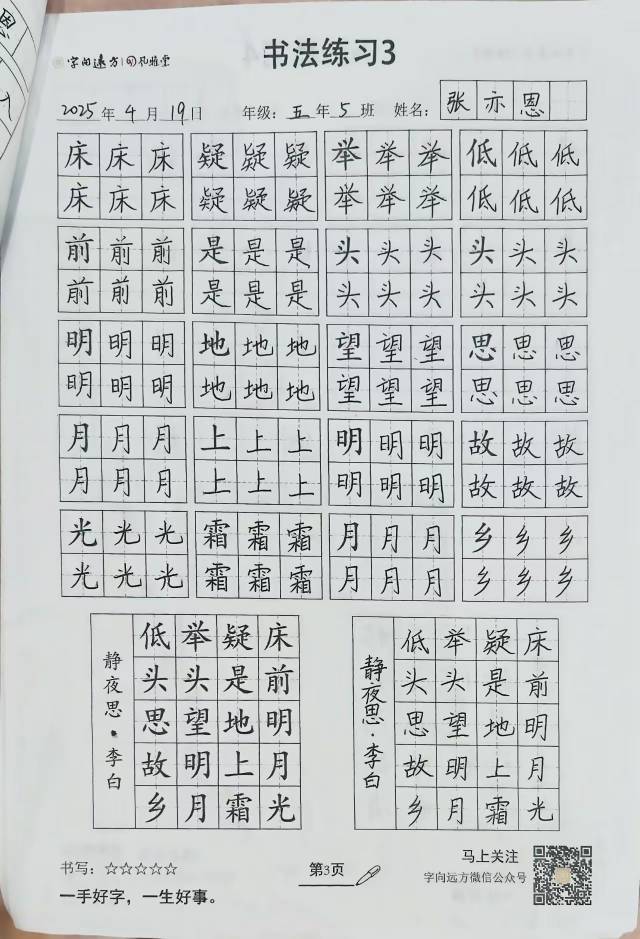 字向远方
书法练习3
2025年4月19日 年级：五年5班 姓名：张亦恩
床床床 疑疑疑 举举举 低低低
床床床 疑疑疑 举举举 低低低
前前前 是是是 头头头 头头头
前前前 是是是 头头头 头头头
明明明 地地地 望望望 思思思
明明明 地地地 望望望 思思思
月月月 上上上 明明明 故故故
月月月 上上上 明明明 故故故
光光光 霜霜霜 月月月 乡乡乡
光光光 霜霜霜 月月月 乡乡乡
床前明月光
疑是地上霜
举头望明月
低头思故乡
静夜思·李白
床前明月光
疑是地上霜
举头望明月
低头思故乡
静夜思·李白
书写：☆☆☆☆☆
一手好字，一生好事。
第3页
马上关注
字向远方微信公众号